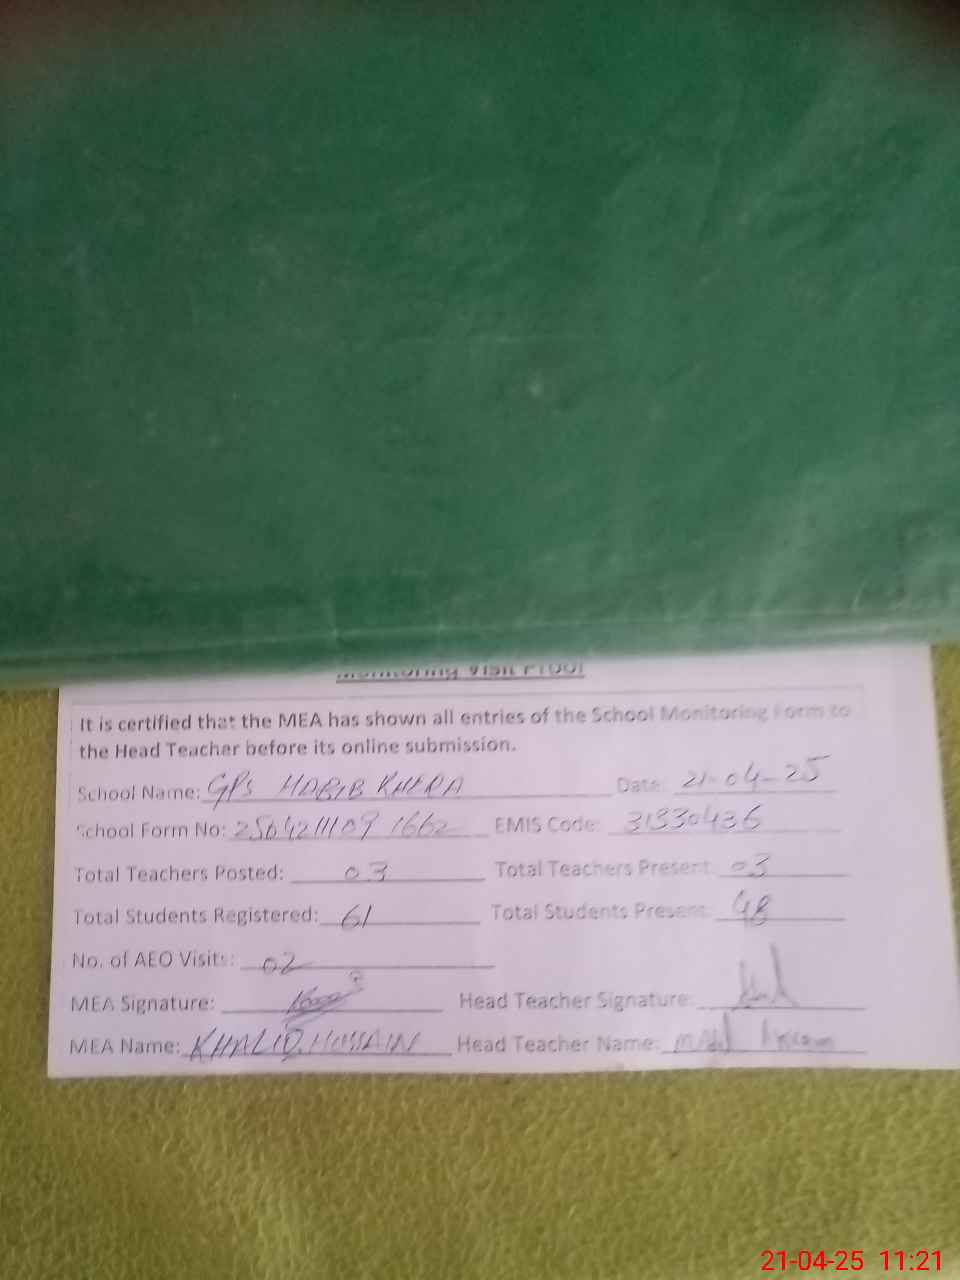 Monitoring Visit Proof
It is certified that the MEA has shown all entries of the School Monitoring Form to
the Head Teacher before its online submission.
School Name: GPS HABIB KHERA Date: 21-04-25
School Form No: 2504211109 1662 EMIS Code: 31330436
Total Teachers Posted: 03 Total Teachers Present: 03
Total Students Registered: 61 Total Students Present: 48
No. of AEO Visits: 02
MEA Signature: Head Teacher Signature:
MEA Name: KHALIQ HUSSAIN Head Teacher Name:
21-04-25 11:21